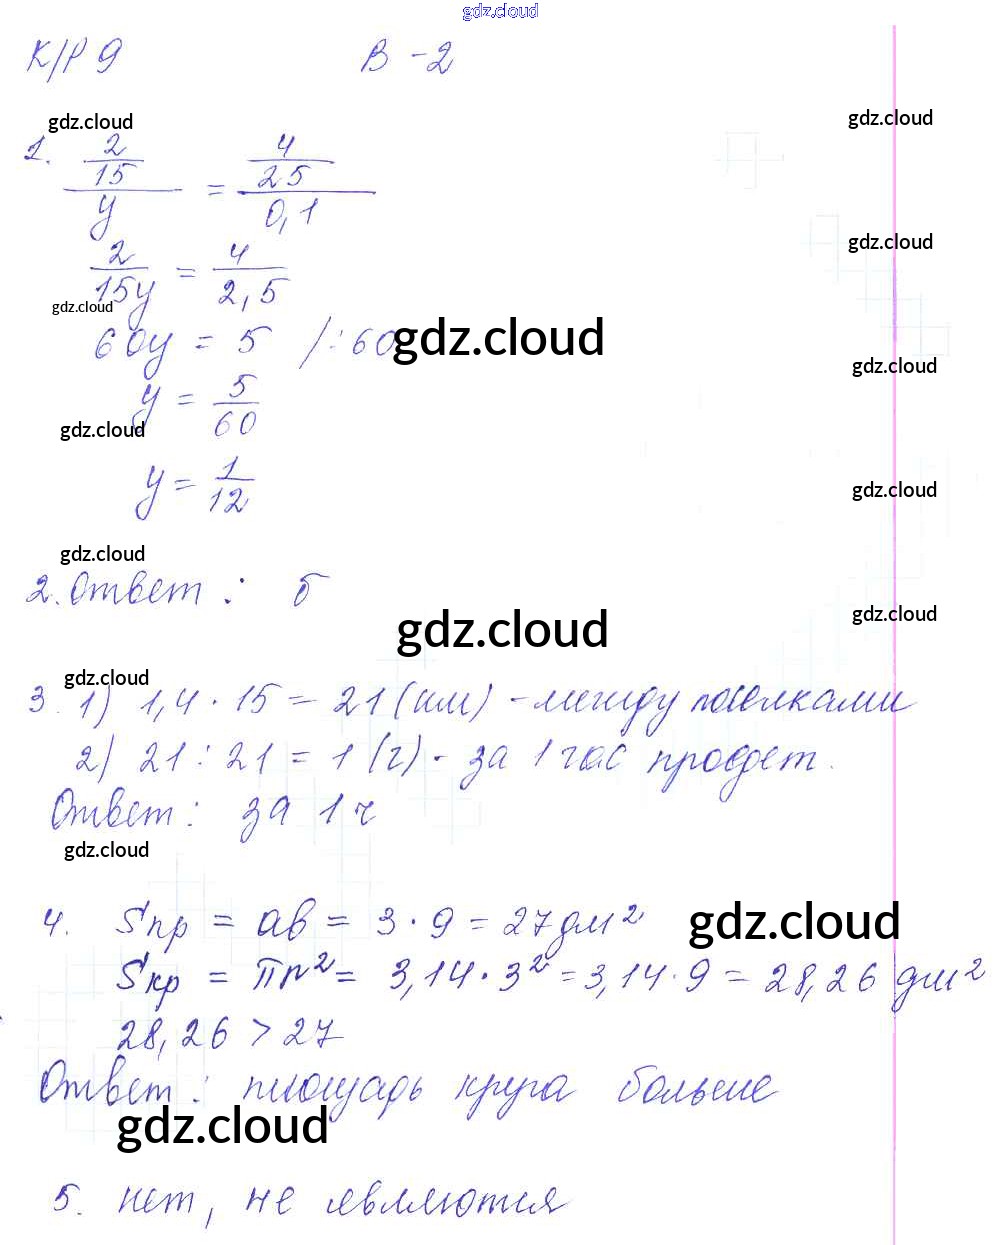 gdz.cloud
К/Р 9 В -2
gdz.cloud gdz.cloud
1. 2/15 / y = 4/25 / 0,1
gdz.cloud
2/15y = 4/2,5
gdz.cloud
60y = 5 /:60
gdz.cloud
gdz.cloud
y = 5/60
gdz.cloud
y = 1/12
gdz.cloud
gdz.cloud
2. Ответ: б
gdz.cloud
gdz.cloud
gdz.cloud
3. 1) 1,4 · 15 = 21 (км) - между поселками
2) 21 : 21 = 1 (ч) - за 1 час проедет.
Ответ: за 1 ч
gdz.cloud
4. Sпр = ab = 3 · 9 = 27 дм²
gdz.cloud
Sкр = πr² = 3,14 · 3² = 3,14 · 9 = 28,26 дм²
28,26 > 27
Ответ: площадь круга больше
gdz.cloud
5. нет, не являются